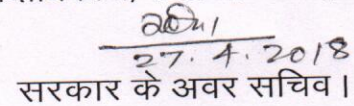 27.4.2018
सरकार के अवर सचिव।